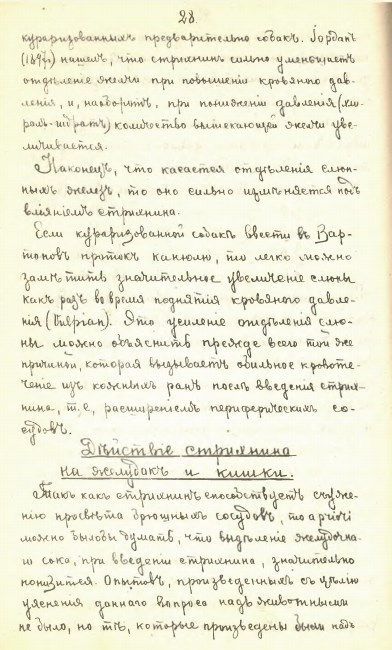 28
кураризованныхъ предварительно собакъ. Іорданъ
нашелъ, что стрихнинъ сильно уменьшаетъ
отдѣленіе желчи при повышеніи кровяного дав-
ленія, и, наоборотъ, при пониженіи давленія (хло-
ралъ-гидратъ) количество вытекающей желчи уве-
личивается.
Наконецъ, что касается отдѣленія слюн-
ныхъ железъ, то оно сильно измѣняется подъ
вліяніемъ стрихнина.
Если кураризованной собакѣ ввести въ Вар-
тоновъ протокъ канюлю, то легко можно
замѣтить значительное увеличеніе слюны
какъ разъ во время поднятія кровяного давле-
нія. Это усиленіе отдѣленія слю-
ны можно объяснить прежде всего той же
причиной, которая вызываетъ обильное кровоте-
ченіе изъ кожныхъ ранъ послѣ введенія стрих-
нина, т.е. расширеніемъ периферическихъ со-
судовъ.
Дѣйствіе стрихнина
на желудокъ и кишки.
Такъ какъ стрихнинъ способствуетъ суже-
нію просвѣта брюшныхъ сосудовъ, то a priori
можно было бы думать, что выдѣленіе желудочна-
го сока, при введеніи стрихнина, значительно
понизится. Опытовъ, произведенныхъ съ цѣлію
уясненія даннаго вопроса надъ животными
не было, но тѣ, которые произведены были надъ